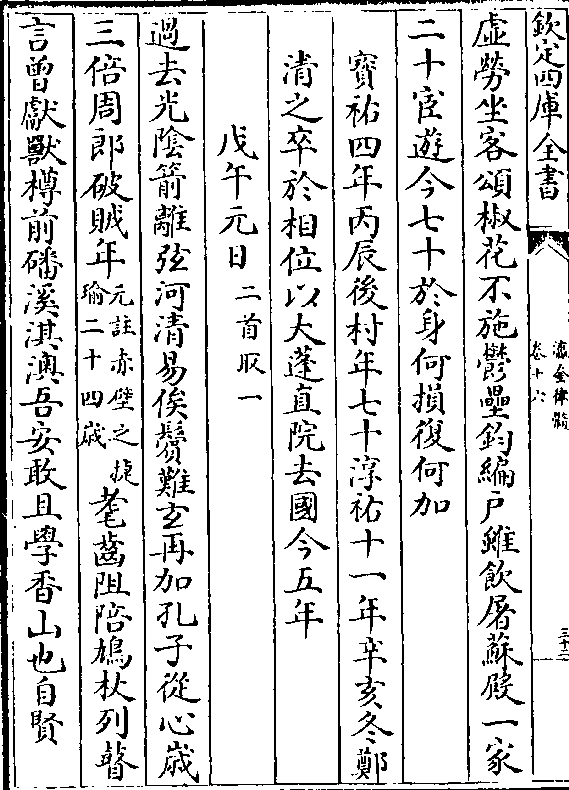 欽定四庫全書
瀛奎律髓
卷十六
三十二
虛勞坐客頌椒花不施鬱壘鈞編戶雖飲屠蘇殿一家
二十宦遊今七十於身何損復何加
寶祐四年丙辰後村年七十淳祐十一年辛亥冬鄭
清之卒於相位以大蓬直院去國今五年
戊午元日二首取一
過去光陰箭離弦河清易俟鬢難玄再加孔子從心歲
三倍周郎破賊年元註赤壁之捷瑜二十四歲耄齒阻陪鳩杖列瞽
言曾獻獸樽前磻溪淇澳吾安敢且學香山也自賢